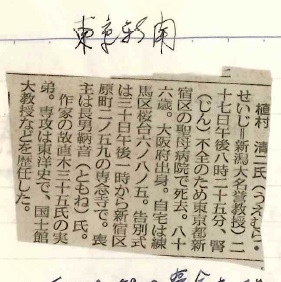 東京新聞
植村 清二氏(うえむら・
せいじ=新潟大名誉教授)二
十七日午後八時二十五分、腎
(じん)不全のため東京都新
宿区の聖母病院で死去。八十
六歳。大阪府出身。自宅は練
馬区桜台六ノ八ノ五。告別式
は三十日午後一時から新宿区
原町二ノ五九の専念寺で。喪
主は長男鞆音(ともね)氏。
作家の故直木三十五氏の実
弟。専攻は東洋史で、国士館
大教授などを歴任した。